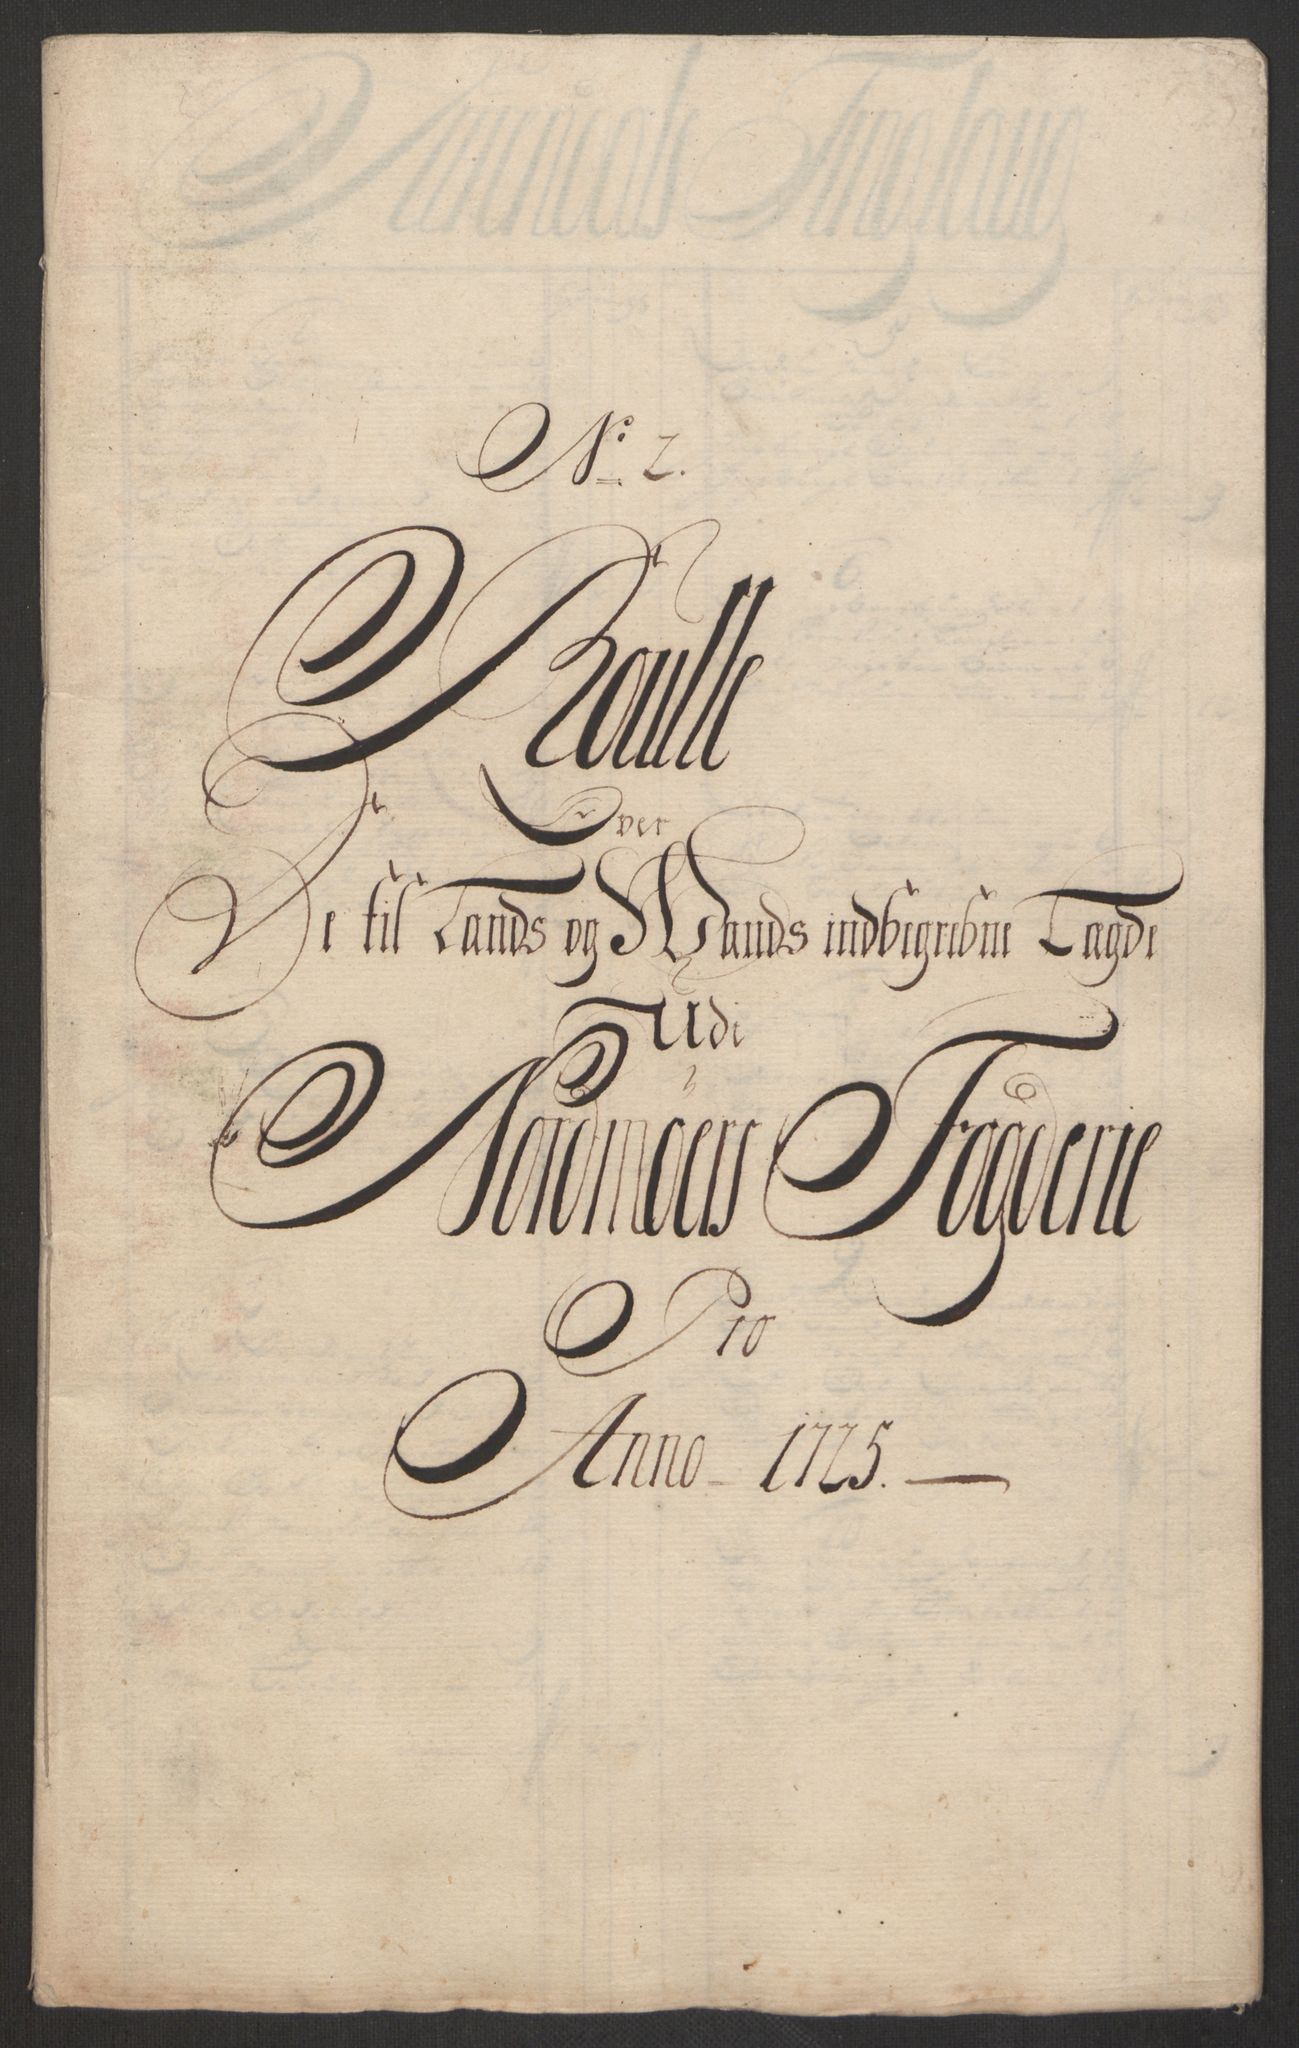 No. 2.
Roulle
Over
De til Lands og Wands indbegrebne Lægde
Udi
Nordmøers Fogderie
Pro
Anno 1725.